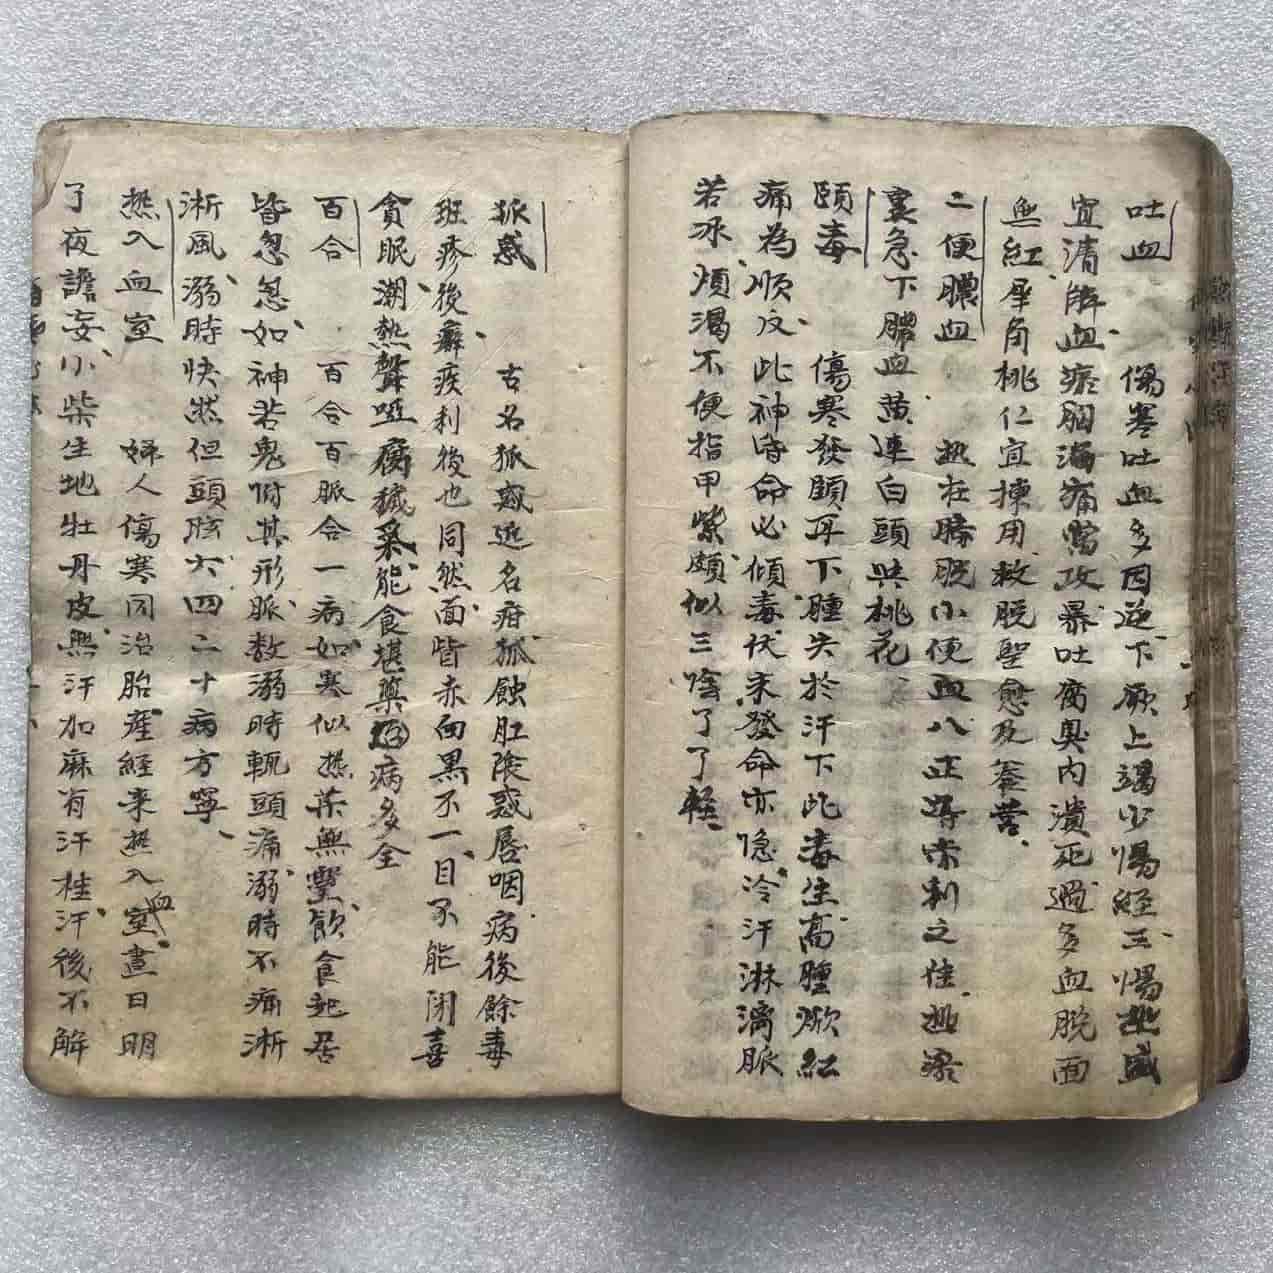 吐血 傷寒吐血多因逆下厥上竭少陽經三陽熱盛
宜清解血瘀胸滿痛當攻暴吐腐臭內潰死過多血脫面
無紅犀角桃仁宜揀用救脫聖愈及養荣
二便膿血 熱在膀胱小便血八正導赤利之佳熱瘀
裏急下膿血黄連白頭與桃花
頤毒 傷寒發頤耳下腫失於汗下此毒生高腫焮紅
痛為順反此神昏命必傾毒伏未發命亦隐冷汗淋漓脈
若冰煩渴不便指甲紫頗似三陰了了輕
狐惑 古名狐惑近名疳狐蝕肛陰惑唇咽病後餘毒
斑疹後癖疾利後也同然面眥赤白黑不一目不能闭喜
貪眠潮熱聲啞腐穢氣能食堪藥病多全
百合 百合百脈合一病如寒似热荣無靈飲食起居
皆忽忽如神若鬼附其形脈数溺時輒頭痛溺時不痛淅
淅風溺時快然但頭眩六四二十病方寧
热入血室 婦人傷寒同治胎産經来热入血室晝日明
了夜譫妄小柴生地牡丹皮無汗加麻有汗桂汗後不解